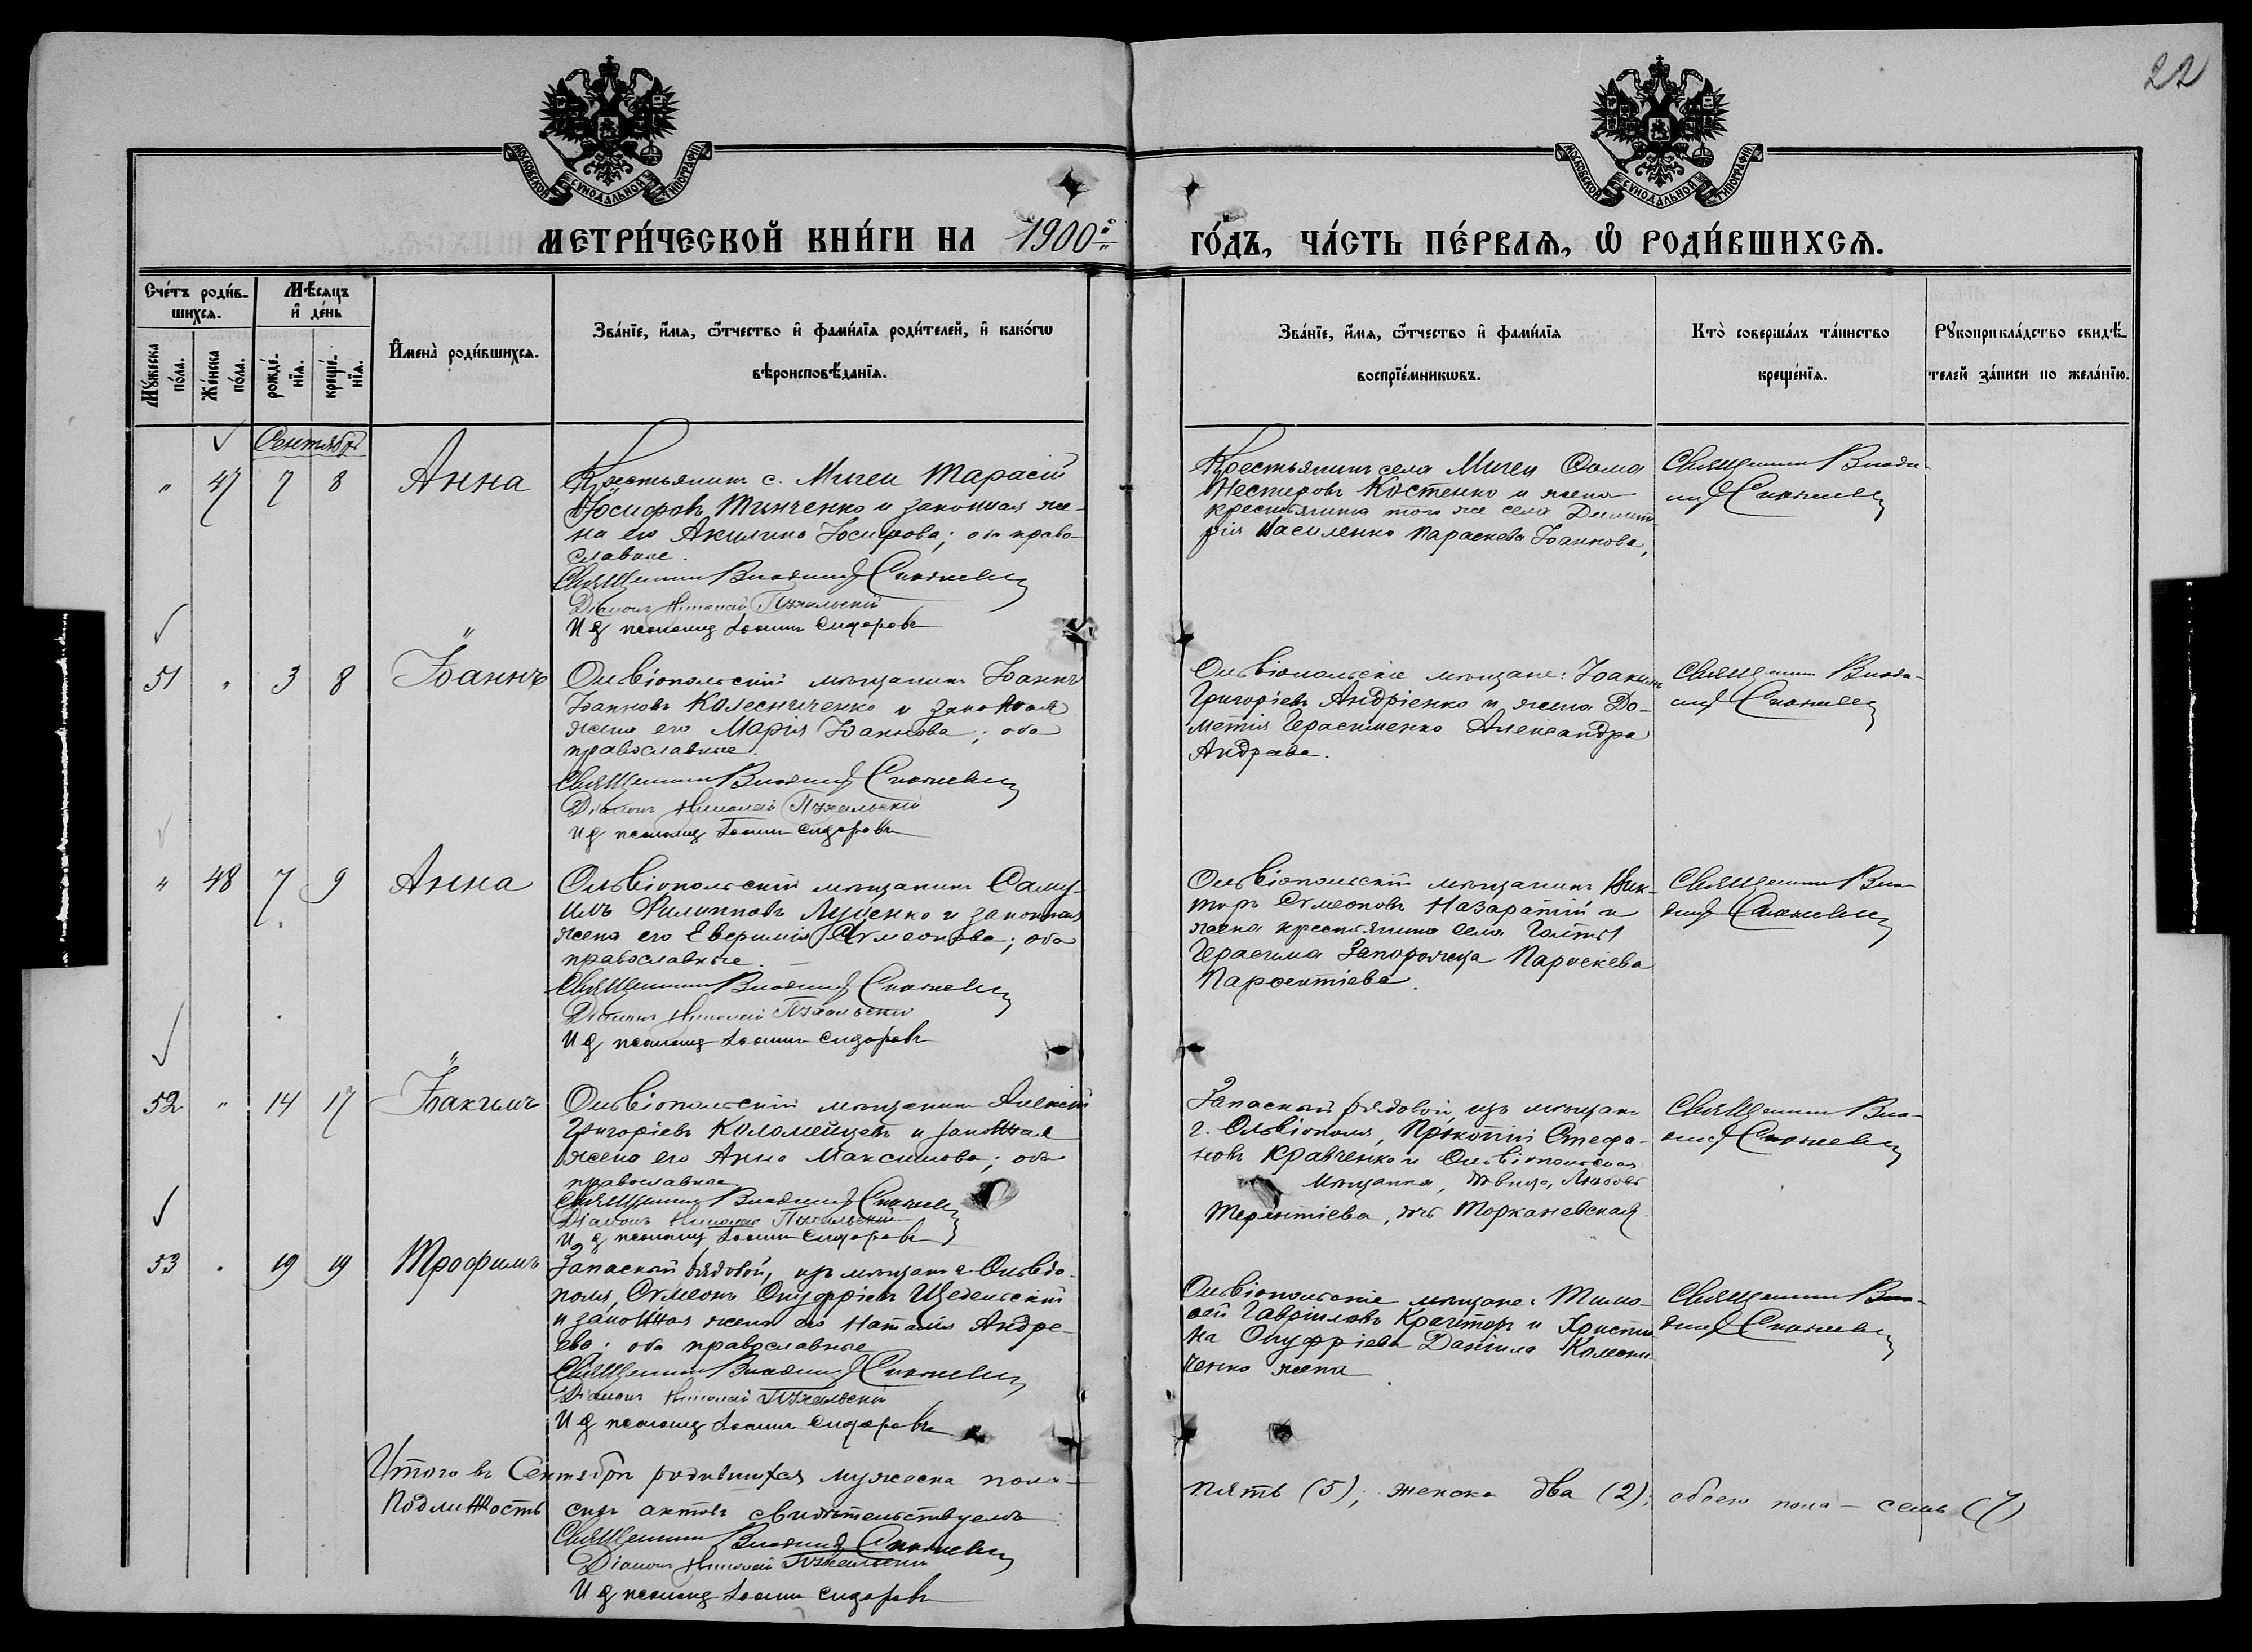 22
МОСКОВСКОЙ СѴНОДАЛЬНОЙ ТИПОГРАФІИ
МОСКОВСКОЙ СѴНОДАЛЬНОЙ ТИПОГРАФІИ
МЕТРИ́ЧЕСКОЙ КНИ́ГИ НА 1900й
ГО́ДЪ, ЧА́СТЬ ПЕ́РВАѦ, Ѡ҆ РОДИ́ВШИХСѦ.
Сче́тъ роди́в-
шихсѧ.
Мꙋ́жеска по́ла.
Же́нска по́ла.
Мѣ́сѧцъ
и҆ де́нь
рожде́-
нїѧ.
креще́-
нїѧ.
И҆мена̀ роди́вшихсѧ.
Зва́нїе, и҆́мѧ, ѻ҆́тчество и҆ фамн́лїѧ роди́телей, и҆ како́гѡ
вѣроисповѣ́данїѧ.
Зва́нїе, и҆́мѧ, ѻ҆́тчество и҆ фами́лїѧ
воспрїе́мникѡвъ.
Кто̀ соверша́лъ та́инство
креще́нїѧ.
Рꙋкоприкла́дство свидѣ́-
телей за́писи по жела́нїю.
Сентябрь
" 47 7 8 Анна
Крестьянинъ с. Мигеи Тарасій
Іосифовъ Тинченко и законная же-
на его Акилина Іосифова; оба право-
славные.
Священникъ Владимір
Діаконъ Николай
И д псаломщ Іоаннъ Сидоровъ
Крестьянинъ села Мигеи Фома
Нестеровъ Костенко и жена
крестьянина того же села Димит-
рія Василенко Параскева Іоаннова,
Священникъ Влади-
мір
51 " 3 8 Іоаннъ
Ольвіопольскій мѣщанинъ Іоаннъ
Іоанновъ Колесниченко и законная
жена его Марія Іоаннова; оба
православные.
Священникъ Владимір
Діаконъ Николай
И д псаломщ Іоаннъ Сидоровъ
Ольвіопольскіе мѣщане: Іоакимъ
Григоріевъ Андріенко и жена До-
метія Герасименко Александра
Андреева.
Священникъ Влади-
мір
" 48 7 9 Анна
Ольвіопольскій мѣщанинъ Саму-
илъ Филипповъ Луценко и законная
жена его Евфимія Сѵмеонова; оба
православные.
Священникъ Владимір
Діаконъ Николай
И д псаломщ Іоаннъ Сидоровъ
Ольвіопольскій мѣщанинъ Вик-
торъ Сѵмеоновъ Назаратій и
жена крестьянина села Голты
Герасима Запорожца Параскева
Парфентіева.
Священникъ Вла-
димір
52 " 14 17 Іоакимъ
Ольвіопольскій мѣщанинъ Алексій
Григоріевъ Коломейцевъ и законная
жена его Анна Максимова; оба
православные
Священникъ Владимір
Діаконъ Николай
И д псаломщ Іоаннъ Сидоровъ
Запасный рядовой, изъ мѣщанъ
г. Ольвіополя, Прокопій Стефа-
новъ Кравченко и Ольвіопольская
мѣщанка, дѣвица, Любовь
Терентіева, Моркановская
Священникъ Вла-
димір
53 " 19 19 Трофимъ
Запасный рядовой, изъ мѣщанъ г. Ольвіо-
поля, Сѵмеонъ Онуфріевъ Щедельскій
и законная жена его Наталія Андре-
ева; оба православные
Священникъ Владимір
Діаконъ Николай
И д псаломщ Іоаннъ Сидоровъ
Ольвіопольскіе мѣщане: Тимо-
фей Гавріиловъ и Христи-
на Онуфріева Даніила Колесни-
ченко жена
Священникъ Вла-
димір
Итого въ Сентябрѣ родившихся мужеска пола -
пять (5); женска два (2); обоего пола - семь (7)
Подлинность сихъ актовъ свидѣтельствуемъ:
Священникъ Владимір
Діаконъ Николай
И д псаломщ Іоаннъ Сидоровъ